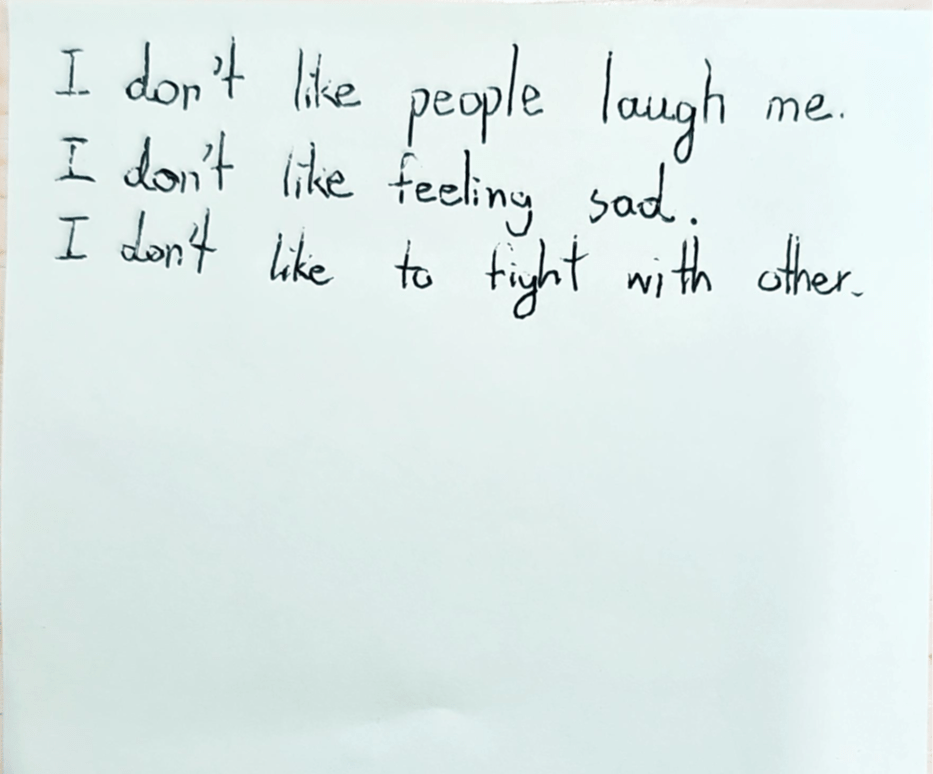 I don't like people laugh me.
I don't like feeling sad.
I don't like to fight with other.